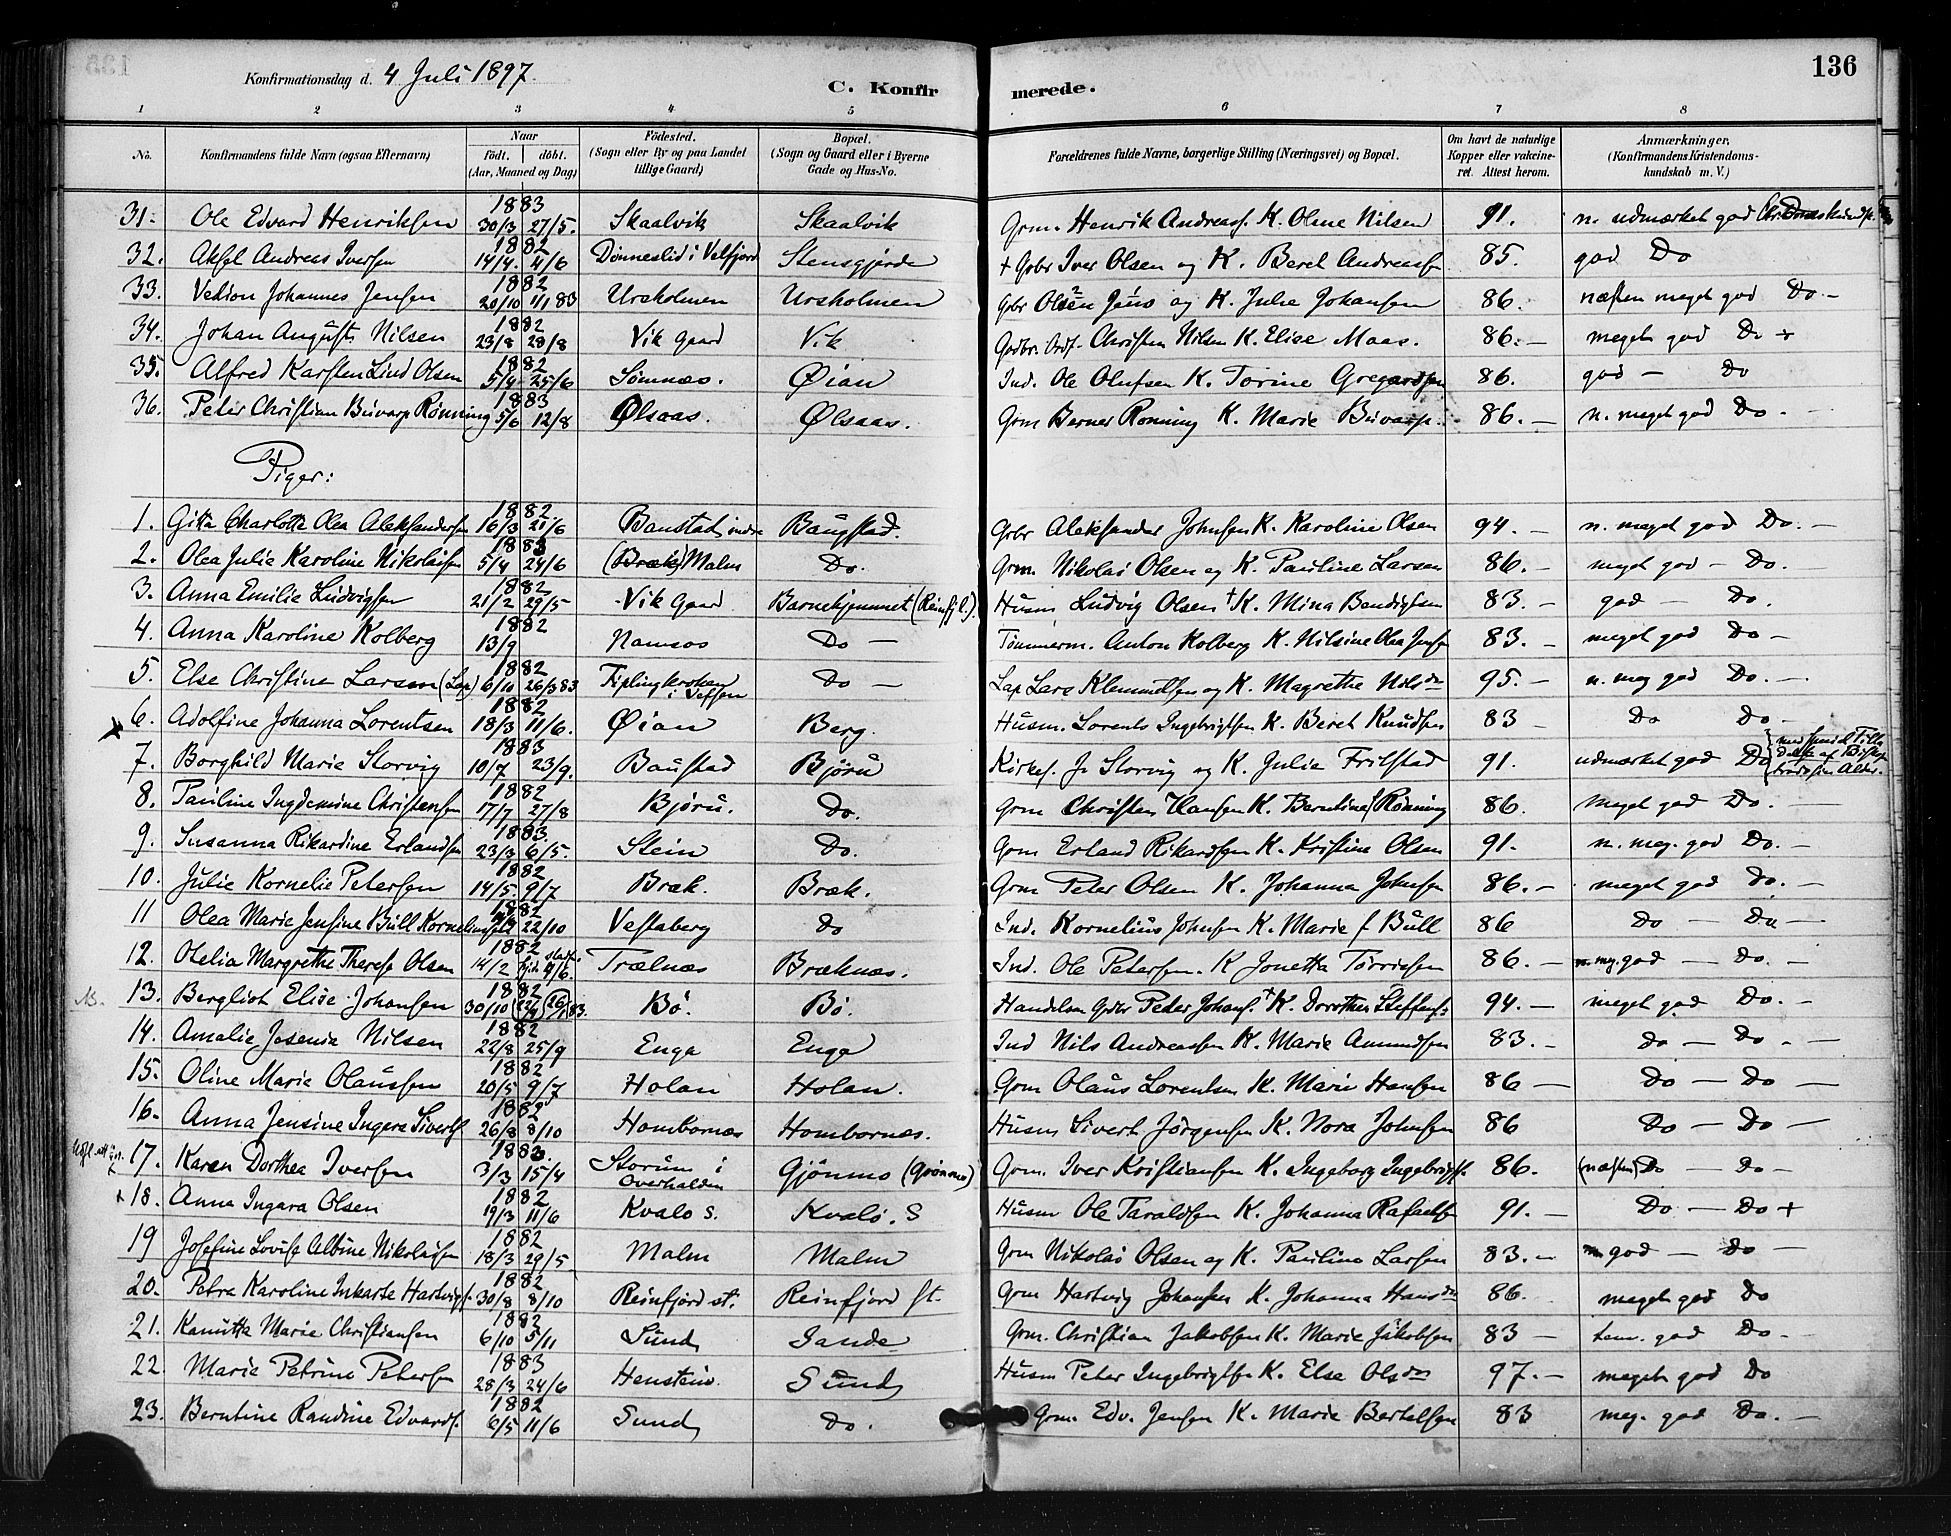 136
Konfirmationsdag d. 4 Juli 1897.
C. Konfirmerede.
1 2 3 4 5 6 7 8
No. Konfirmandens fulde Navn (ogsaa Efternavn) Naar födt. döbt. (Aar, Maaned og Dag) Födested. (Sogn eller By og paa Landet tillige Gaard) Bopæl. (Sogn og Gaard eller i Byerne Gade og Hus-No. Forældrenes fulde Navne, borgerlige Stilling (Næringsvei) og Bopæl. Om havt de naturlige Kopper eller vakcineret. Attest herom. Anmærkninger. (Konfirmandens Kristendomskundskab m. V.)
31. Ole Edvard Henriksen 1883 30/3 27/5. Skaalvik Skaalvik Grm. Henrik Andreass. K. Oline Nilsen 91. n. udmærket god
32. Aksel Andreas Iversen 1882 14/4. 4/6 Dönneslid i Velfjord Stensgjerde + Gbr Iver Olsen og K. Beret Andreassen 85. god Do
33. Vedion Johannes Jensen 1882 20/10 1/1 83 Ursholmen Ursholmen Gbr Olsen Jens og K. Julie Johansen 86. næsten meget god Do. -
34. Johan August Nilsen 1882 23/8 28/8 Vik Gaard Vik Christen Nilsen K. Elise Maas. 86. - meget god Do +
35. Alfred Karsten Lind Olsen 1882 5/4 25/6 Sömnæs. Øian Ind. Ole Olufsen K. Torine Gregardsen 86. god - Do
36. Peter Christian Buvarp Rønning 1883 5/6 12/8 Ølsaas. Ølsaas. Grm Berner Rønning K. Marie Buvarp. 86. - n. meget god Do. -
Piger:
1. Gitta Charlotte Olea Aleksandersen 1882 16/3 21/6 Baustad indre Baugstad. Gbr Aleksander Johnsen K. Karoline Olsen 94. - n. meget god Do. -
2. Olea Julie Karoline Nikolaisen 1883 5/4 24/6 (Bræk) Malm Do. Grm. Nikolai Olsen og K. Pauline Larsen 86. - meget god - Do.
3. Anna Emilie Ludvigsen 1882 21/2 29/5 Vik Gaard Barnehjemmet (Reinfj.). Husm Ludvig Olsen + K. Mina Bendigtsen 83. - god - Do.
4. Anna Karoline Kolberg 1882 13/9 Namsos Do - Tömmerm. Anton Kolberg K. Nilsine Olea Jensen 83. - meget god Do -
5. Else Christine Larsen (Lap) 1882 6/10 26/3 83 Fiplingkroken i Vefsen Do - Lap Lars Klemmetsen og K. Magrethe Nilsdtr 95. - n. meg god Do. -
6. Adolfine Johanna Lorentsen 1882 18/3 11/6. Øian Berg. Husm. Lorents Ingebrigtsen K. Beret Knudsen 83 - Do Do -
7. Borghild Marie Storvig 1883 10/7 23/9. Baustad Björu Kirkes. Jr Storvig og K. Julie Frilstad 91. udmærket god Do
8. Pauline Ingdemine Christensen 1882 17/7 27/8 Björu. Do. Grm Christen Hansen K. Berntine Rønning 86. meget god Do. -
9. Susanna Rikardine Erlandsen 1883 23/3 6/5. Stein Do. Grm Erland Rikardsen K. Kristine Olsen 91. n. meg. god Do. -
10. Julie Kornelie Petersen 1882 14/5. 9/7 Bræk. Bræk. Grm Peter Olsen K. Johanna Johnsen 86. - meget god Do. -
11 Olea Marie Jensine Bull Korneliussen 1882 22/10 Vestaberg Do Ind. Kornelius Johnsen K. Marie f Bull 86 Do - Do -
12. Otelia Margrethe Therese Olsen 1882 14/2 hjd. 9/6. Trælnæs Bræknæs. Ind. Ole Petersen. K Jonetta Törrisen 86. - n. meg. god - Do. -
13. Bergliot Elise Johansen 1882 30/10 Bö. Bö. Peter Johans. + K. Dorothea Steffens. 94. - meget god Do. -
14. Amalie Josenia Nilsen 1882 22/8 25/9 Enga Enga Ind Nils Andreassen K. Marie Amundsen 83. - Do - Do. -
15. Oline Marie Olaussen 1882 20/5 9/7 Holan Holan. Grm Olaus Lorentsen K. Marie Hansen 86 - Do - Do -
16. Anna Jensine Ingera Sivertsen 1882 26/8 8/10 Hombornæs Hombornæs. Husm Sivert Jørgensen K. Nora Johnsen 86 Do - Do -
17. Karen Dorthea Iversen 1883. 3/3 15/4 Storum i Overhalden Gjönmo (Grönmo) Grm. Iver Kristiansen K. Ingeborg Ingebrigts. 86. - (næsten) Do - Do -
+ 18. Anna Ingara Olsen 1882 19/3 11/6 Kvalö s. Kvalö. S Husm Ole Taraldsen K. Johanna Rafaelsen 91. - Do - Do +
19 Josefine Lovise Albine Nikolaisen 1882 18/3 29/5 Malm Malm Grm Nikolai Olsen og K. Pauline Larsen 83. - god - Do -
20. Petra Karoline Inkarte Hartvigs. 1882 30/8 8/10 Reinfjord st. Reinfjord st. Grm Hartvig Johansen K. Johanna Hansdtr 86. meget god Do
21. Kamitta Marie Christiansen 1882 6/10 5/11 Sund Sande Grm. Christian Jakobsen K. Marie Jakobsen 83 - tem. god Do -
22. Marie Petrine Petersen 1883 28/3 24/6 Henstein. Sund Husm Peter Ingebrigtsen K. Else Olsdtr 97. - meget god Do
23. Berntine Randine Edvards. 1882 6/5 11/6 Sund Do. Grm. Edv. Jensen K. Marie Bertelsen 83 meg. god Do. -